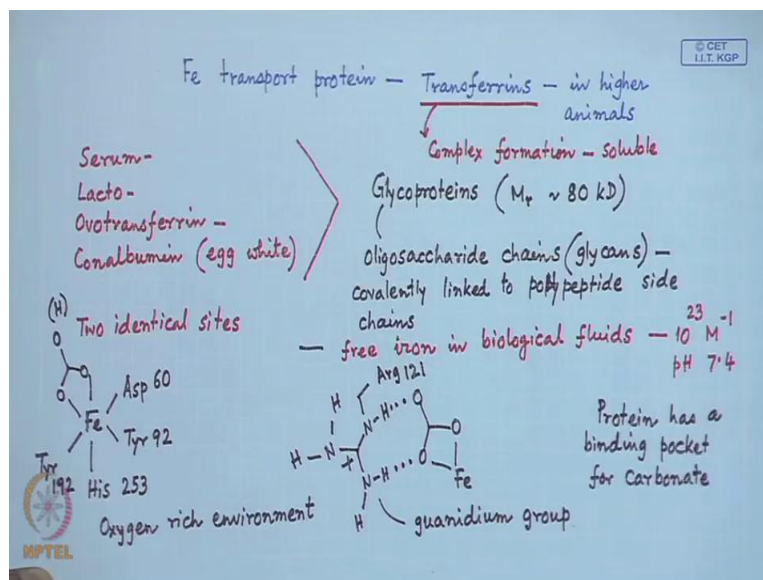 © CET
I.I.T. KGP
Fe transport protein – Transferrins – in higher
animals
Complex formation – soluble
Serum-
Lacto-
Ovotransferrin-
Conalbumin (egg white)
Glycoproteins (Mr ~ 80 kD)
oligosaccharide chains (glycans) –
covalently linked to polypeptide side
chains
Two identical sites
– free iron in biological fluids – 10^23 M^-1
pH 7.4
(H)
O
O
O
Fe
Asp 60
Tyr 92
Tyr
192
His 253
Oxygen rich environment
Arg 121
H
H-N
+
N-H...O
O
N-H...O
H
Fe
guanidium group
Protein has a
binding pocket
for Carbonate
NPTEL